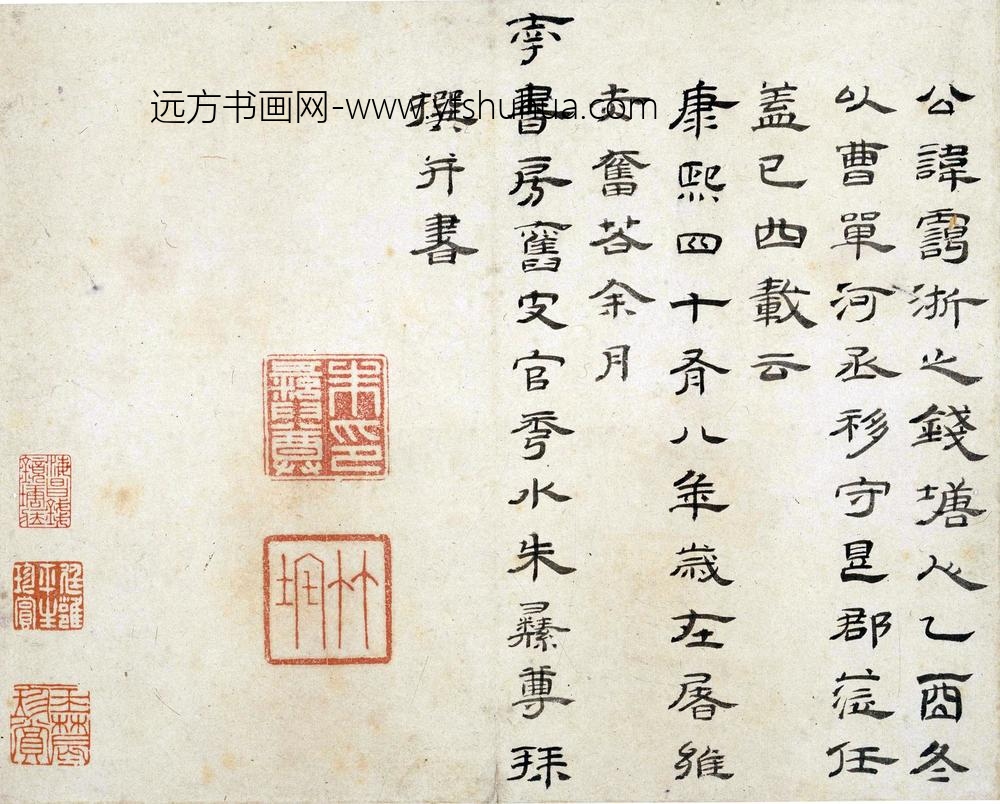 公諱浙之錢塘人乙酉冬
以曹單河丞移守是郡蒞任
蓋已四載云
康熙四十有八年歲在屠維
赤奮若余月
南書房舊史官秀水朱彝尊拜
撰并書
朱印彝尊
竹垞
海昌錢鏡塘藏
平生珍賞
珍賞
远方书画网-www.yishuhua.com